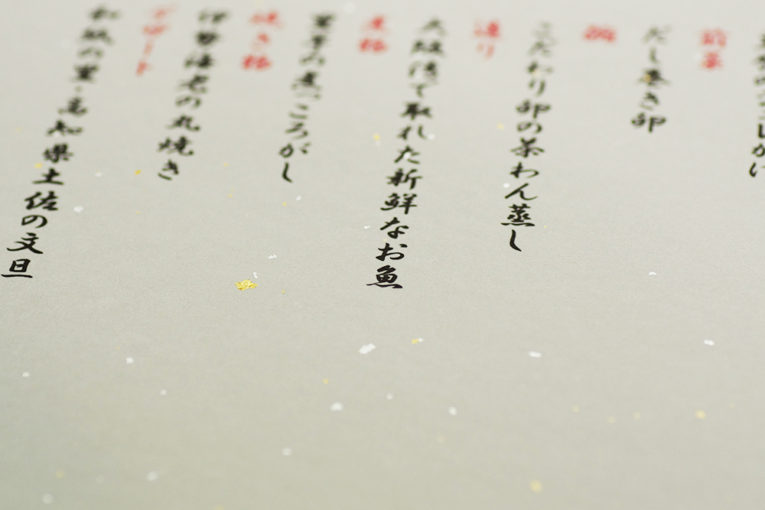 前菜
だし巻き卵
こだわり卵の茶わん蒸し
造り
大阪湾で取れた新鮮なお魚
煮物
里芋の煮っころがし
焼き物
伊勢海老の丸焼き
デザート
和紙の里・高知県土佐の文旦